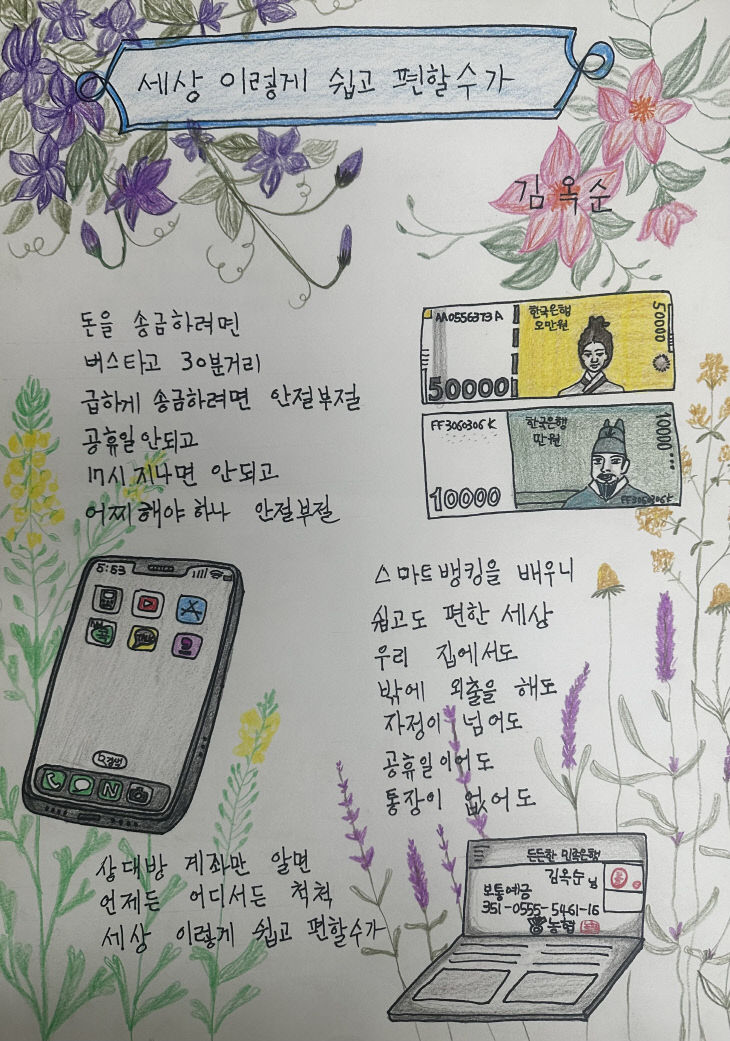 세상 이렇게 쉽고 편할수가
김옥순
돈을 송금하려면
버스타고 30분거리
급하게 송금하려면 안절부절
공휴일 안되고
17시 지나면 안되고
어찌해야하나 안절부절
AA0556373A
한국은행
오만원
50000
50000
FF3060306K
한국은행
만원
10000
10000
FF3060306K
5:53
검색
N
스마트뱅킹을 배우니
쉽고도 편한 세상
우리 집에서도
밖에 외출을 해도
자정이 넘어도
공휴일이어도
통장이 없어도
상대방 계좌만 알면
언제든 어디서든 척척
세상 이렇게 쉽고 편할수가
든든한 민족은행
김옥순 님
보통예금
351-0555-5461-16
농협